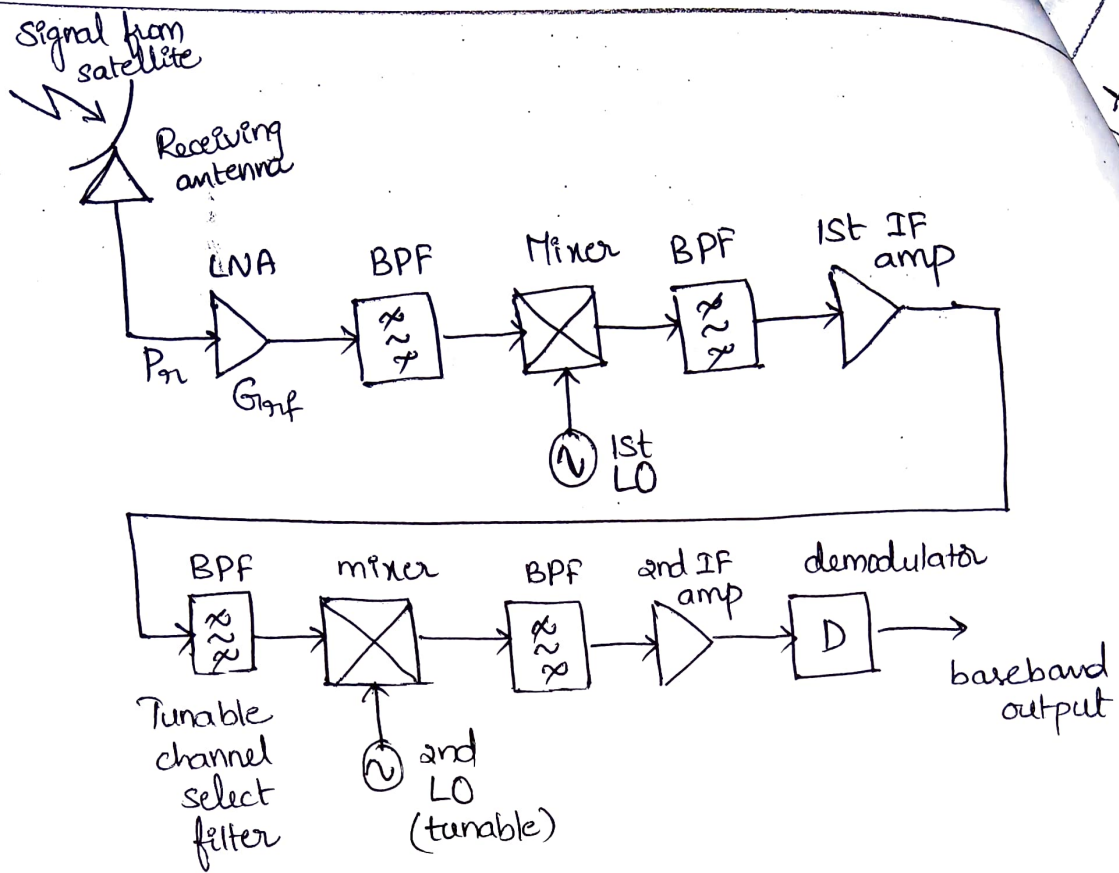 Signal from
satellite
Receiving
antenna
LNA
BPF
Mixer
BPF
1st IF
amp
Pr
Grf
1st
LO
BPF
mixer
BPF
2nd IF
amp
demodulator
D
baseband
output
Tunable
channel
select
filter
2nd
LO
(tunable)